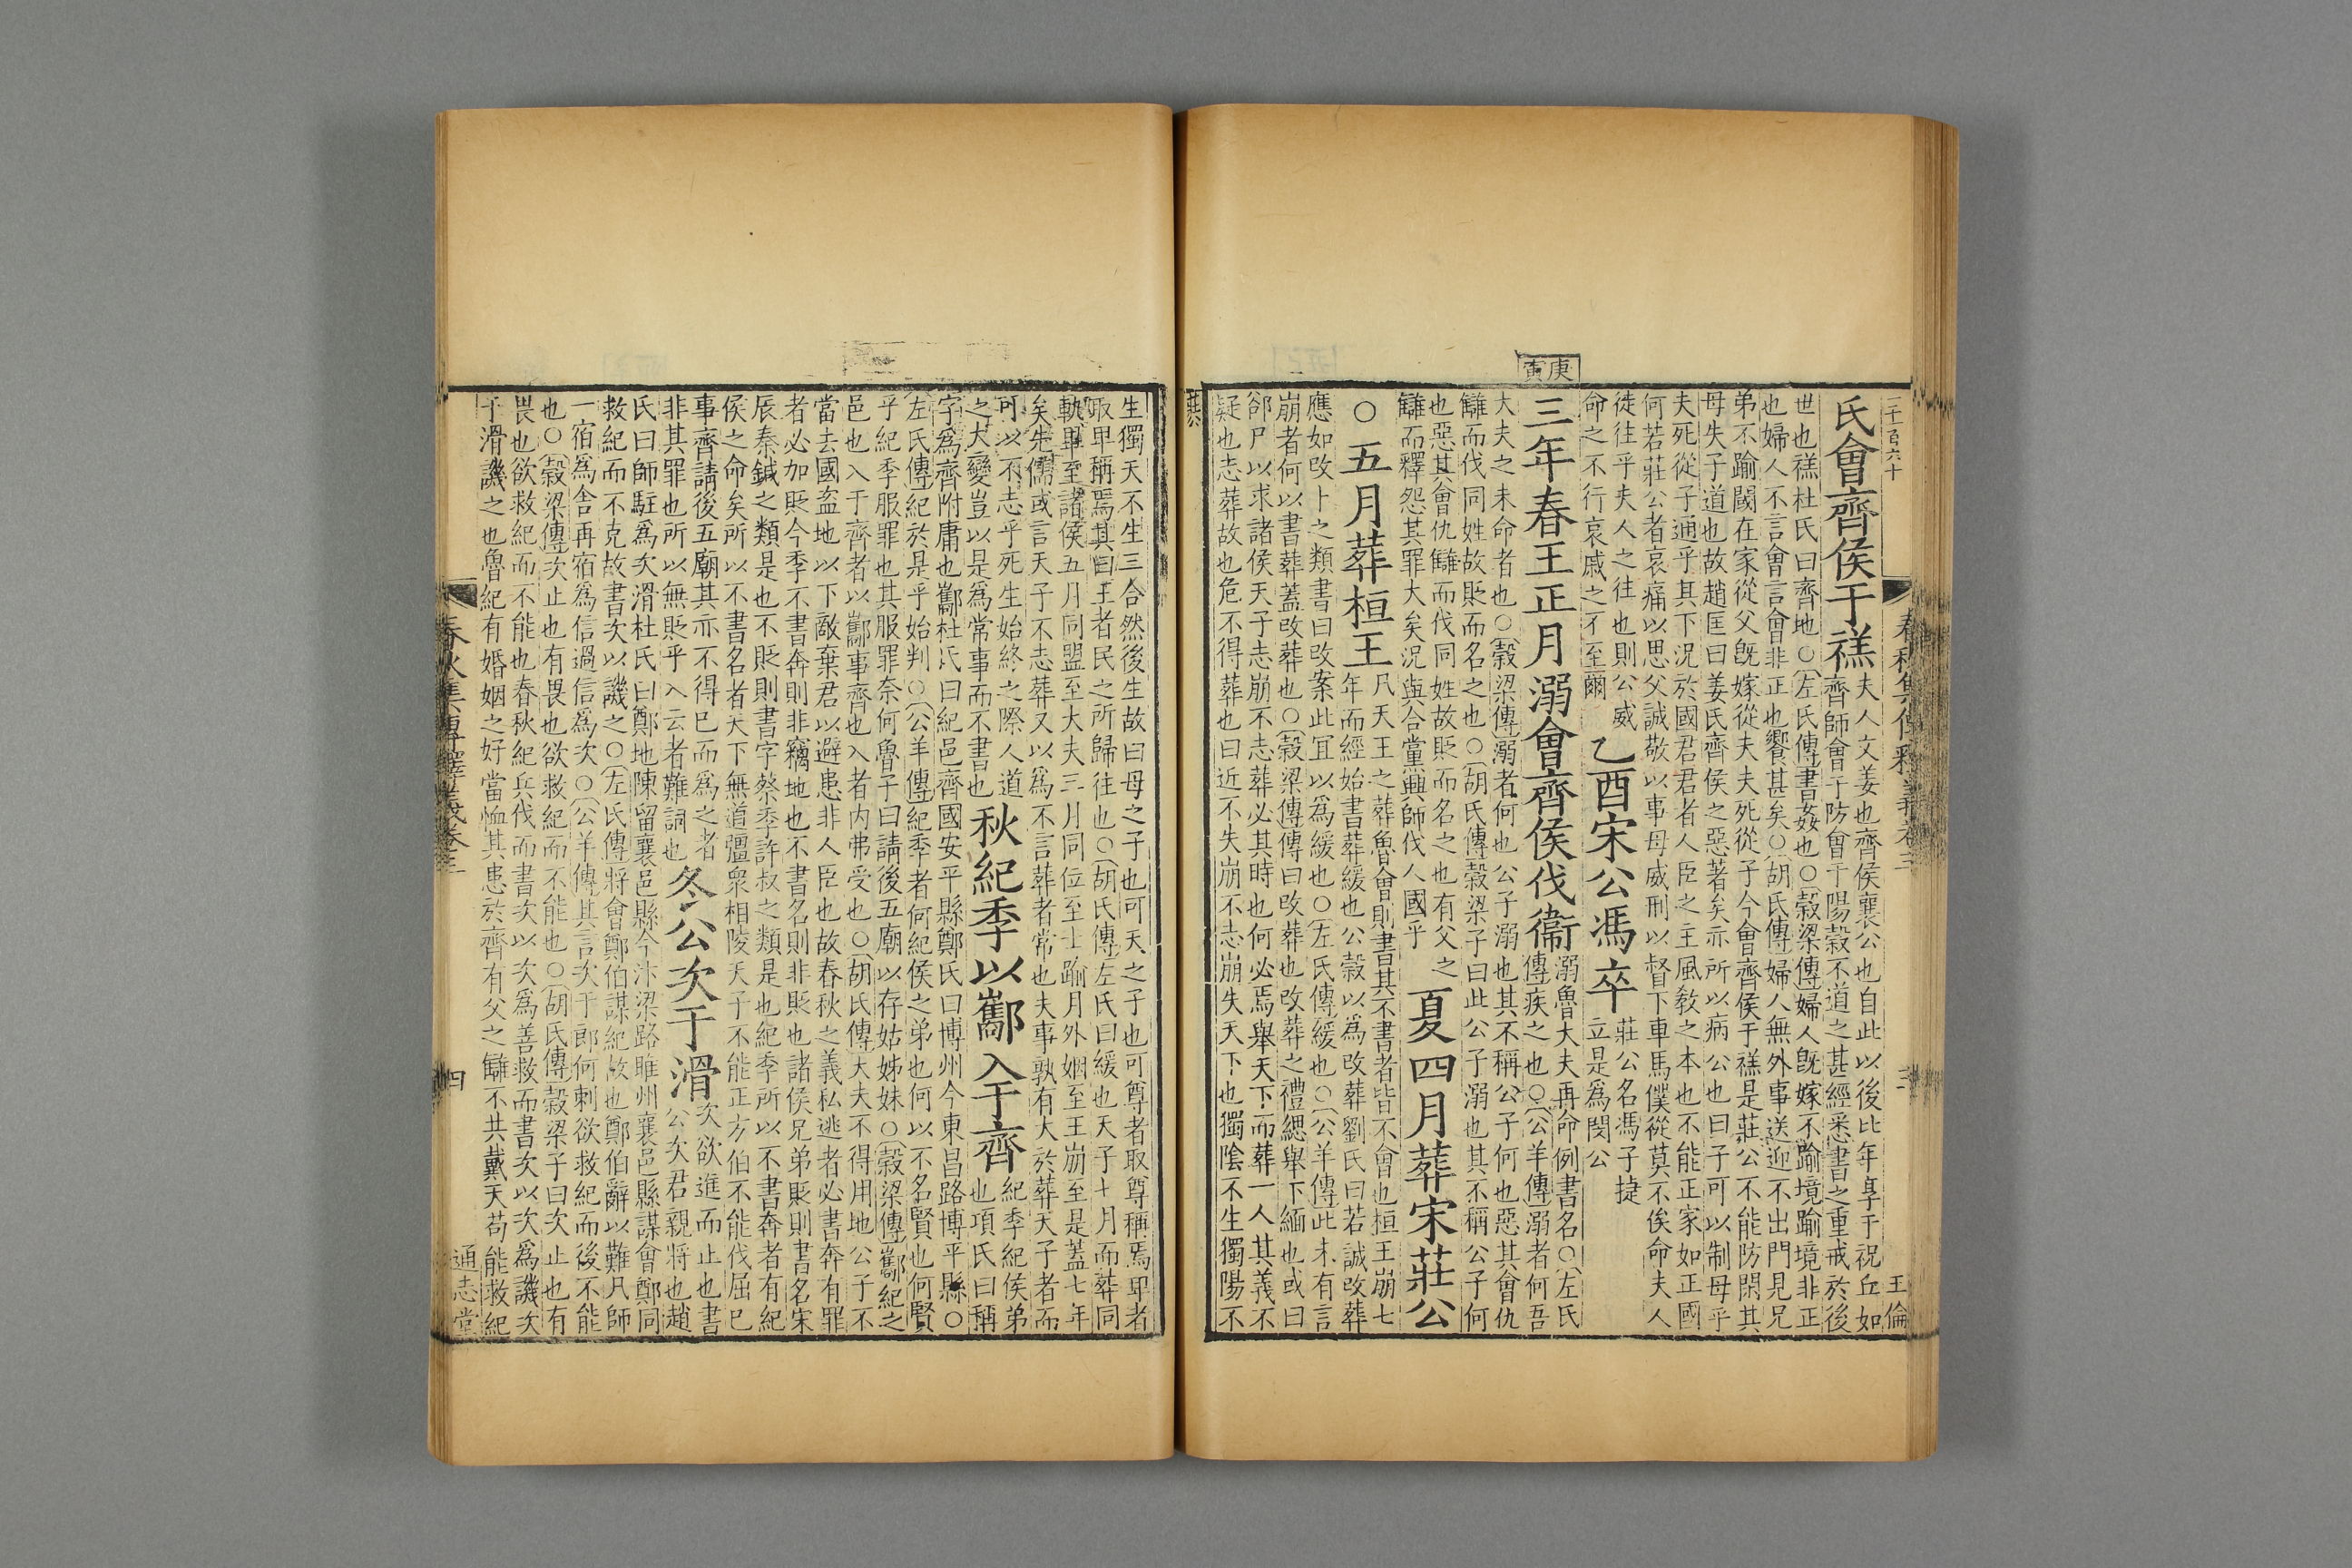 二千二百六十
春秋集傳釋義卷三
三
王倫
氏會齊侯于禚夫人文姜也齊侯襄公也自此以後比年享于祝丘如
齊師會于防會于陽穀不道之甚經悉書之重戒於後
世也禚杜氏曰齊地○左氏傳書姦也○穀梁傳婦人旣嫁不踰境踰境非正
也婦人不言會言會非正也饗甚矣○胡氏傳婦人無外事送迎不出門見兄
弟不踰閾在家從父旣嫁從夫夫死從子今會齊侯于禚是莊公不能防閑其
母失子道也故趙匡曰姜氏齊侯之惡著矣亦所以病公也曰子可以制母乎
夫死從子通乎其下況於國君君者人臣之主風敎之本也不能正家如正國
何若莊公者哀痛以思父誠敬以事母威刑以督下車馬僕從莫不俟命夫人
徒往乎夫人之往也則公威
命之不行哀戚之不至爾
乙酉宋公馮卒
莊公名馮子捷
立是爲閔公
庚寅
三年春王正月溺會齊侯伐衞
溺魯大夫再命例書名○左氏
傳疾之也○公羊傳溺者何吾
大夫之未命者也○穀梁傳溺者何也公子溺也其不稱公子何也惡其會仇
讎而伐同姓故貶而名之也○胡氏傳穀梁子曰此公子溺也其不稱公子何
也惡其會仇讎而伐同姓故貶而名之也有父之
讎而釋怨其罪大矣況與合黨興師伐人國乎
夏四月葬宋莊公
○五月葬桓王
凡天王之葬魯會則書其不書者皆不會也桓王崩七
年而經始書葬緩也公穀以爲改葬劉氏曰若誠改葬
應如改卜之類書曰改案此宜以爲緩也○左氏傳緩也○公羊傳此未有言
崩者何以書葬蓋改葬也○穀梁傳傳曰改葬也改葬之禮緦舉下緬也或曰
郤尸以求諸侯天子志崩不志葬必其時也何必焉舉天下而葬一人其義不
疑也志葬故也危不得葬也曰近不失崩不志崩失天下也獨陰不生獨陽不
莊公
生獨天不生三合然後生故曰母之子也可天之子也可尊者取尊稱焉卑者
取卑稱焉其曰王者民之所歸往也○胡氏傳左氏曰緩也天子七月而葬同
軌畢至諸侯五月同盟至大夫三月同位至士踰月外姻至王崩至是蓋七年
矣先儒或言天子不志葬又以爲不言葬者常也夫事孰有大於葬天子者而
可以不志乎死生始終之際人道
之大變豈以是爲常事而不書也
秋紀季以酅入于齊
紀季紀侯弟
也項氏曰稱
字爲齊附庸也酅杜氏曰紀邑齊國安平縣鄭氏曰博州今東昌路博平縣○
左氏傳紀於是乎始判○公羊傳紀季者何紀侯之弟也何以不名賢也何賢
乎紀季服罪也其服罪奈何魯子曰請後五廟以存姑姊妹○穀梁傳酅紀之
邑也入于齊者以酅事齊也入者內弗受也○胡氏傳大夫不得用地公子不
當去國盜地以下敵棄君以避患非人臣也故春秋之義私逃者必書奔有罪
者必加貶今季不書奔則非竊地也不書名則非貶也諸侯兄弟貶則書名宋
辰秦鍼之類是也不貶則書字蔡季許叔之類是也紀季所以不書奔者有紀
侯之命矣所以不書名者天下無道彊衆相陵天子不能正方伯不能伐屈已
事齊請後五廟其亦不得已而爲之者
非其罪也所以無貶乎入云者難詞也
冬公次于滑
次欲進而止也書
公次君親將也趙
氏曰師駐爲次滑杜氏曰鄭地陳留襄邑縣今汴梁路睢州襄邑縣謀會鄭同
救紀而不克故書次以譏之○左氏傳將會鄭伯謀紀故也鄭伯辭以難凡師
一宿爲舍再宿爲信過信爲次○公羊傳其言次于郎何刺欲救紀而後不能
也○穀梁傳次止也有畏也欲救紀而不能也○胡氏傳穀梁子曰次止也有
畏也欲救紀而不能也春秋紀兵伐而書次以次爲善救而書次以次爲譏次
于滑譏之也魯紀有婚姻之好當恤其患於齊有父之讎不共戴天苟能救紀
春秋集傳釋義卷三
四
通志堂